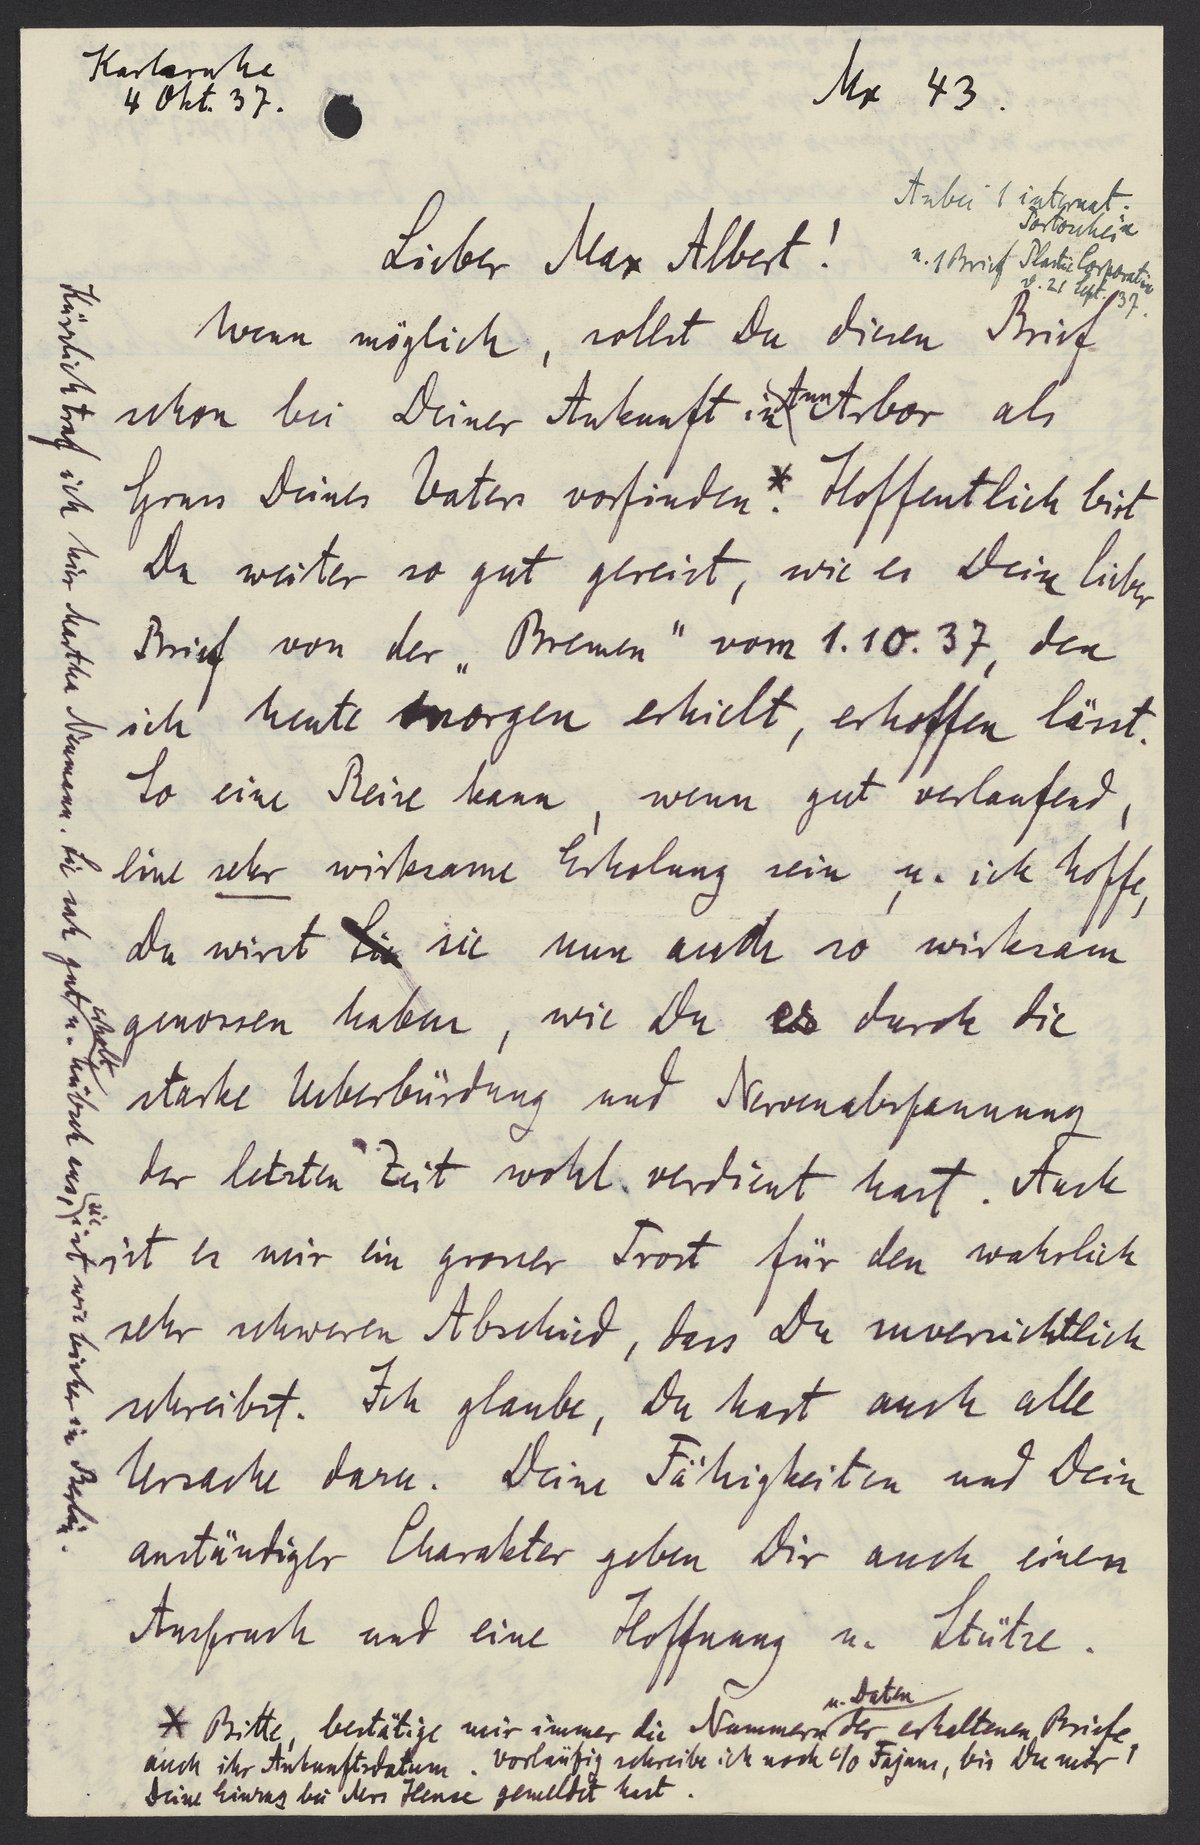 Karlsruhe
4 Okt. 37.
Mx 43.
Anbei 1 internat.
Portoschein
u. 1 Brief Plastic Corporation
v. 21 Sept. 37.
Lieber Max Albert!
Wenn möglich, sollst Du diesen Brief
schon bei Deiner Ankunft in Ann Arbor als
Gruss Deines Vaters vorfinden.* Hoffentlich bist
Du weiter so gut gereist, wie es Dein lieber
Brief von der „Bremen" vom 1.10.37, den
ich heute morgen erhielt, erhoffen lässt.
So eine Reise kann, wenn gut verlaufend,
eine sehr wirksame Erholung sein, u. ich hoffe,
Du wirst sie nun auch so wirksam
genossen haben, wie Du es durch die
starke Ueberbürdung und Nervenabspannung
der letzten Zeit wohl verdient hast. Auch
ist es mir ein grosser Trost für den wahrlich
sehr schweren Abschied, dass Du zuversichtlich
schreibst. Ich glaube, Du hast auch alle
Ursache dazu. Deine Fähigkeiten und Dein
anständiger Charakter geben Dir auch einen
Anspruch und eine Hoffnung u. Stütze.
* Bitte, bestätige mir immer die Nummern u. Daten der erhaltenen Briefe,
auch ihr Ankunftsdatum. Vorläufig schreibe ich noch c/o Fajans, bis Du mir
Deine Einzug bei Mrs Hense gemeldet hast.
Kürzlich traf ich hier Martha Neumann. Sie sah gut u. hübsch aus, sie ist wie bisher in Berlin.